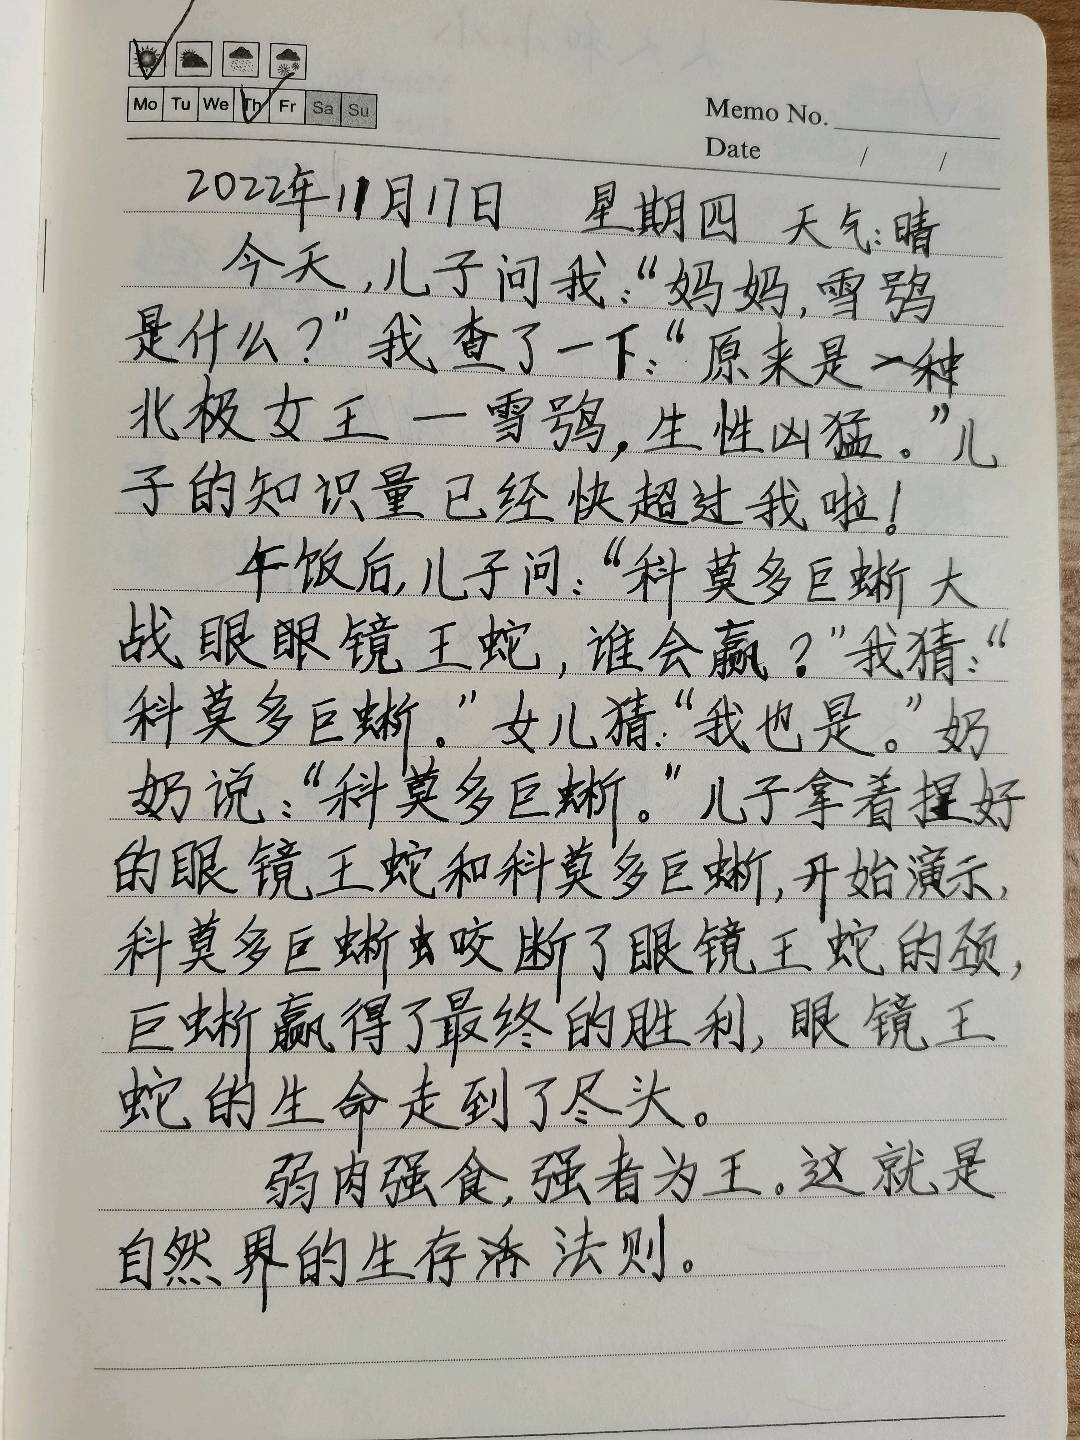 Mo Tu We Th Fr Sa Su
Memo No.
Date / /
2022年11月17日 星期四 天气:晴
今天,儿子问我:“妈妈,雪鸮
是什么?”我查了一下:“原来是一种
北极女王一雪鸮,生性凶猛。”儿
子的知识量已经快超过我啦!
午饭后,儿子问:“科莫多巨蜥大
战眼眼镜王蛇,谁会赢?”我猜:“
科莫多巨蜥。”女儿猜:“我也是。”奶
奶说:“科莫多巨蜥。”儿子拿着捏好
的眼镜王蛇和科莫多巨蜥,开始演示,
科莫多巨蜥咬断了眼镜王蛇的颈,
巨蜥赢得了最终的胜利,眼镜王
蛇的生命走到了尽头。
弱肉强食,强者为王。这就是
自然界的生存法则。